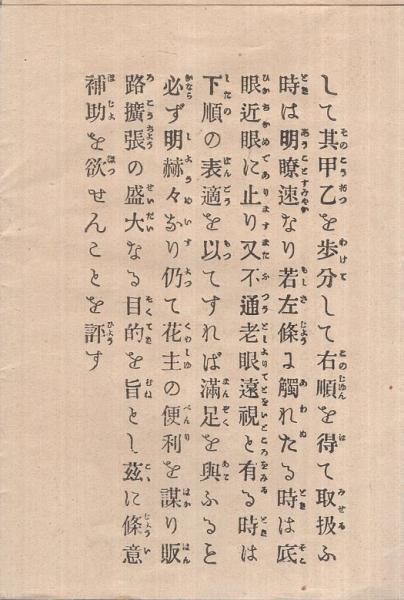 して其甲乙を歩分して右順を得て取扱ふ
時は明瞭速なり若左條ゟ觸れたる時は底
眼近眼に止り又不通老眼遠視と有る時は
下順の表適を以てすれば滿足を與ふると
必ず明赫々なり仍て花主の便利を謀り販
路擴張の盛大なる目的を旨とし茲に條意
補助を欲せんことを評す